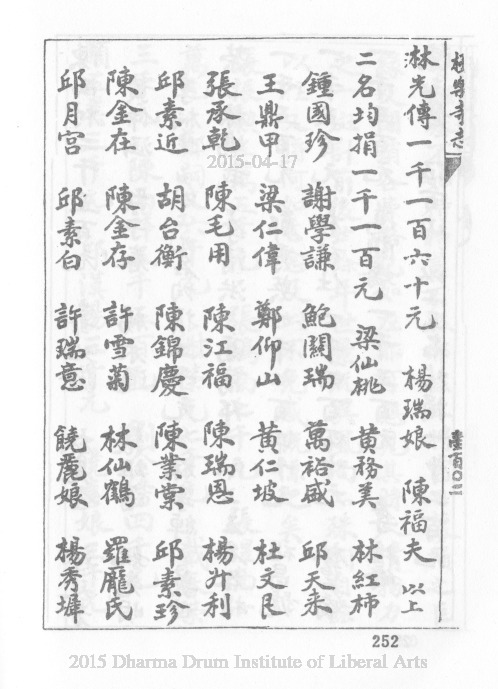 極樂寺志
壹百〇二
淋光傳一千一百六十元 楊瑞娘 陳福夫 以上
二名均捐一千一百元 梁仙桃 黃務美 林紅柿
鍾國珍 謝學謙 鮑闢瑞 萬裕盛 邱天来
王鼎甲 梁仁偉 鄭仰山 黃仁坡 杜文艮
張承乾 陳毛用 陳江福 陳瑞恩 楊升利
邱素近 胡台衡 陳錦慶 陳業棠 邱素珍
陳金在 陳金存 許雪菊 林仙鶴 羅龐氏
邱月宮 邱素白 許瑞意 饒麗娘 楊秀墀
2015-04-17
252
2015 Dharma Drum Institute of Liberal Arts